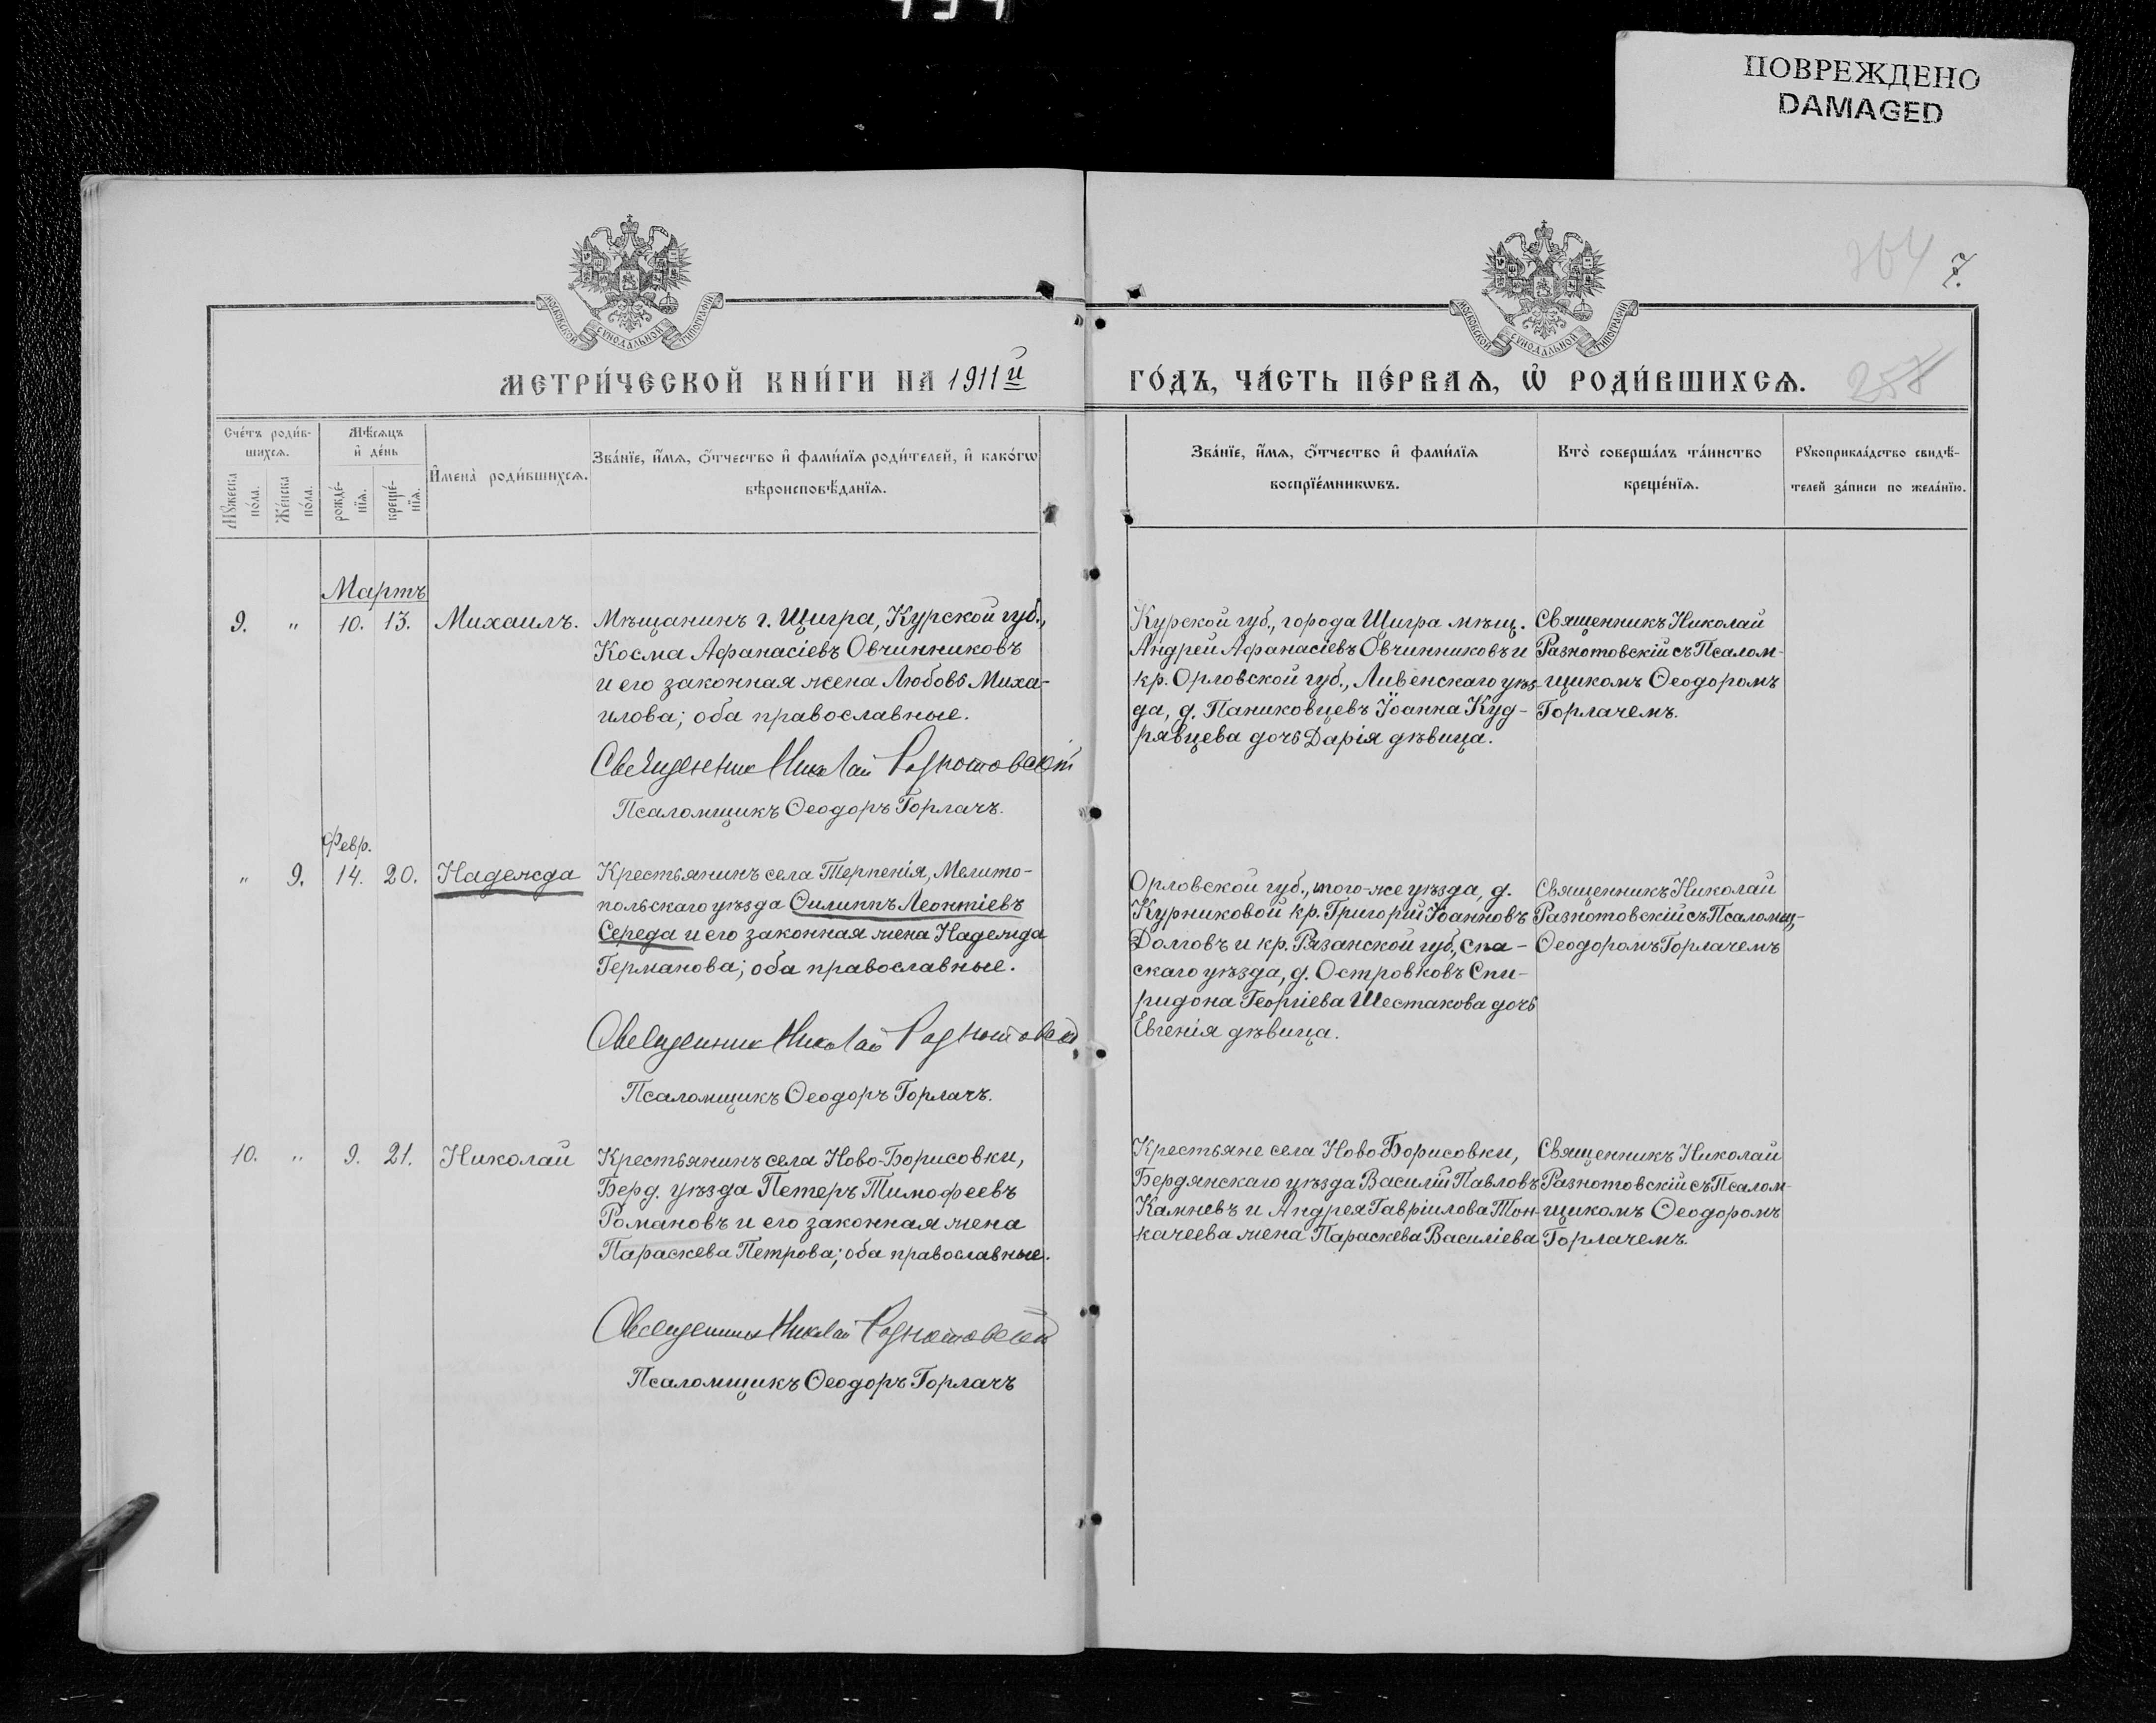 ПОВРЕЖДЕНО
DAMAGED
264
7.
МОСКОВСКОЙ СѴНОДАЛЬНОЙ ТИПОГРАФІИ
МОСКОВСКОЙ СѴНОДАЛЬНОЙ ТИПОГРАФІИ
МЕТРИ́ЧЕСКОЙ КНИ́ГИ НА 1911й
ГО́ДЪ, ЧА́СТЬ ПЕ́РВАѦ, Ѡ҆ РОДИ́ВШИХСѦ.
257
Сче́тъ роди́в-
шихсѧ.
Мꙋ́жеска
по́ла.
Же́нска
по́ла.
Мѣ́сѧцъ
и҆ де́нь
рожде́-
нїѧ.
креще́-
нїѧ.
И҆мена̀ роди́вшихсѧ.
Зва́нїе, и҆́мѧ, ѻ҆́тчество и҆ фами́лїѧ роди́телей, и҆ како́гѡ
вѣроисповѣ́данїѧ.
Зва́нїе, и҆́мѧ, ѻ҆́тчество и҆ фами́лїѧ
воспрїе́мникѡвъ.
Кто̀ соверша́лъ та́инство
креще́нїѧ.
Рꙋкоприкла́дство свидѣ́-
телей за́писи по жела́нїю.
Мартъ
9. " 10. 13. Михаилъ.
Мѣщанинъ г. Щигра, Курской губ.,
Косма Аѳанасіевъ Овчинниковъ
и его законная жена Любовь Миха-
илова; оба православные.
Священник Николай Разнотовскій
Псаломщикъ Ѳеодоръ Горлачъ.
Курской губ., города Щигра мѣщ.
Андрей Аѳанасіевъ Овчинниковъ и
кр. Орловской губ., Ливенскаго уѣз-
да, д. Паниковцевъ Іоанна Куд-
рявцева дочь Дарія дѣвица.
Священникъ Николай
Разнотовскій съ Псалом-
щикомъ Ѳеодоромъ
Горлачемъ.
Февр.
" 9. 14. 20. Надежда
Крестьянинъ села Терпенія, Мелито-
польскаго уѣзда Филиппъ Леонтіевъ
Середа и его законная жена Надежда
Германова; оба православные.
Священник Николай Разнотовскій
Псаломщикъ Ѳеодоръ Горлачъ.
Орловской губ., того-же уѣзда, д.
Курниковой кр. Григорій Іоанновъ
Долговъ и кр. Рязанской губ., Спа-
скаго уѣзда, д. Островковъ Спи-
ридона Георгіева Шестакова дочь
Евгенія дѣвица.
Священникъ Николай
Разнотовскій съ Псаломщ,
Ѳеодоромъ Горлачемъ
10. " 9. 21. Николай
Крестьянинъ села Ново-Борисовки,
Берд. уѣзда Петеръ Тимофеевъ
Романовъ и его законная жена
Параскева Петрова; оба православные.
Священник Николай Разнотовскій
Псаломщикъ Ѳеодоръ Горлачъ
Крестьяне села Ново Борисовки,
Бердянскаго уѣзда Василій Павловъ
Камневъ и Андрея Гавріилова Тон-
качеева жена Параскева Василіева
Священникъ Николай
Разнотовскій съ Псалом-
щикомъ Ѳеодоромъ
Горлачемъ.